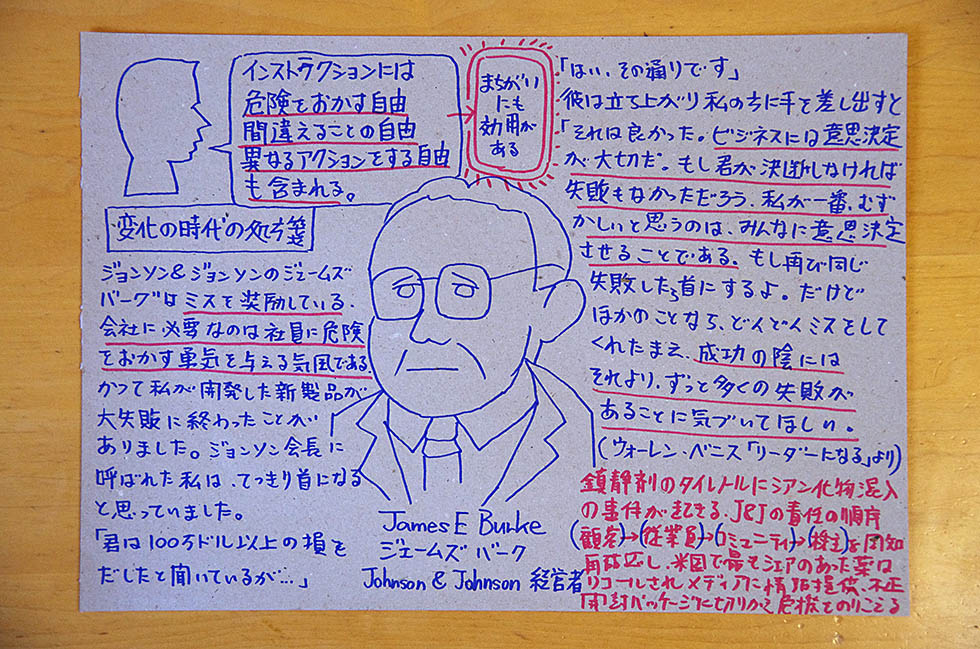 インストラクションには
危険をおかす自由
間違えることの自由
異なるアクションをする自由
も含まれる。
まちがい
にも
効用が
ある
変化の時代の処方箋
ジョンソン&ジョンソンのジェームズ
バークはミスを奨励している、
会社に必要なのは社員に危険
をおかす勇気を与える気風である、
かつて私が開発した新製品が
大失敗に終わったことが
ありました。ジョンソン会長に
呼ばれた私は、てっきり首になる
と思っていました。
「君は100万ドル以上の損を
だしたと聞いているが…」
「はい、その通りです」
彼は立ち上がり私の方に手を差し出すと
「それは良かった。ビジネスには意思決定
が大切だ。もし君が決断しなければ
失敗もなかっただろう、私が一番、むず
かしいと思うのは、みんなに意思決定
させることである。もし再び同じ
失敗したら首にするよ。だけど
ほかのことなら、どんどんミスをして
くれたまえ、成功の陰には
それより、ずっと多くの失敗が
あることに気づいてほしい。
(ウォーレン・ベニス「リーダーになる」より)
James E Burke
ジェームズ バーク
Johnson & Johnson 経営者
鎮静剤のタイレノールにシアン化物混入
の事件が起きる、J&Jの責任の順序
(顧客)→(従業員)→(コミュニティ)→(株主)を周知
対応し、米国で最もシェアのあった薬は
リコールされメディアに情報提供、不正
開封パッケージに切りかえ危機をのりこえる